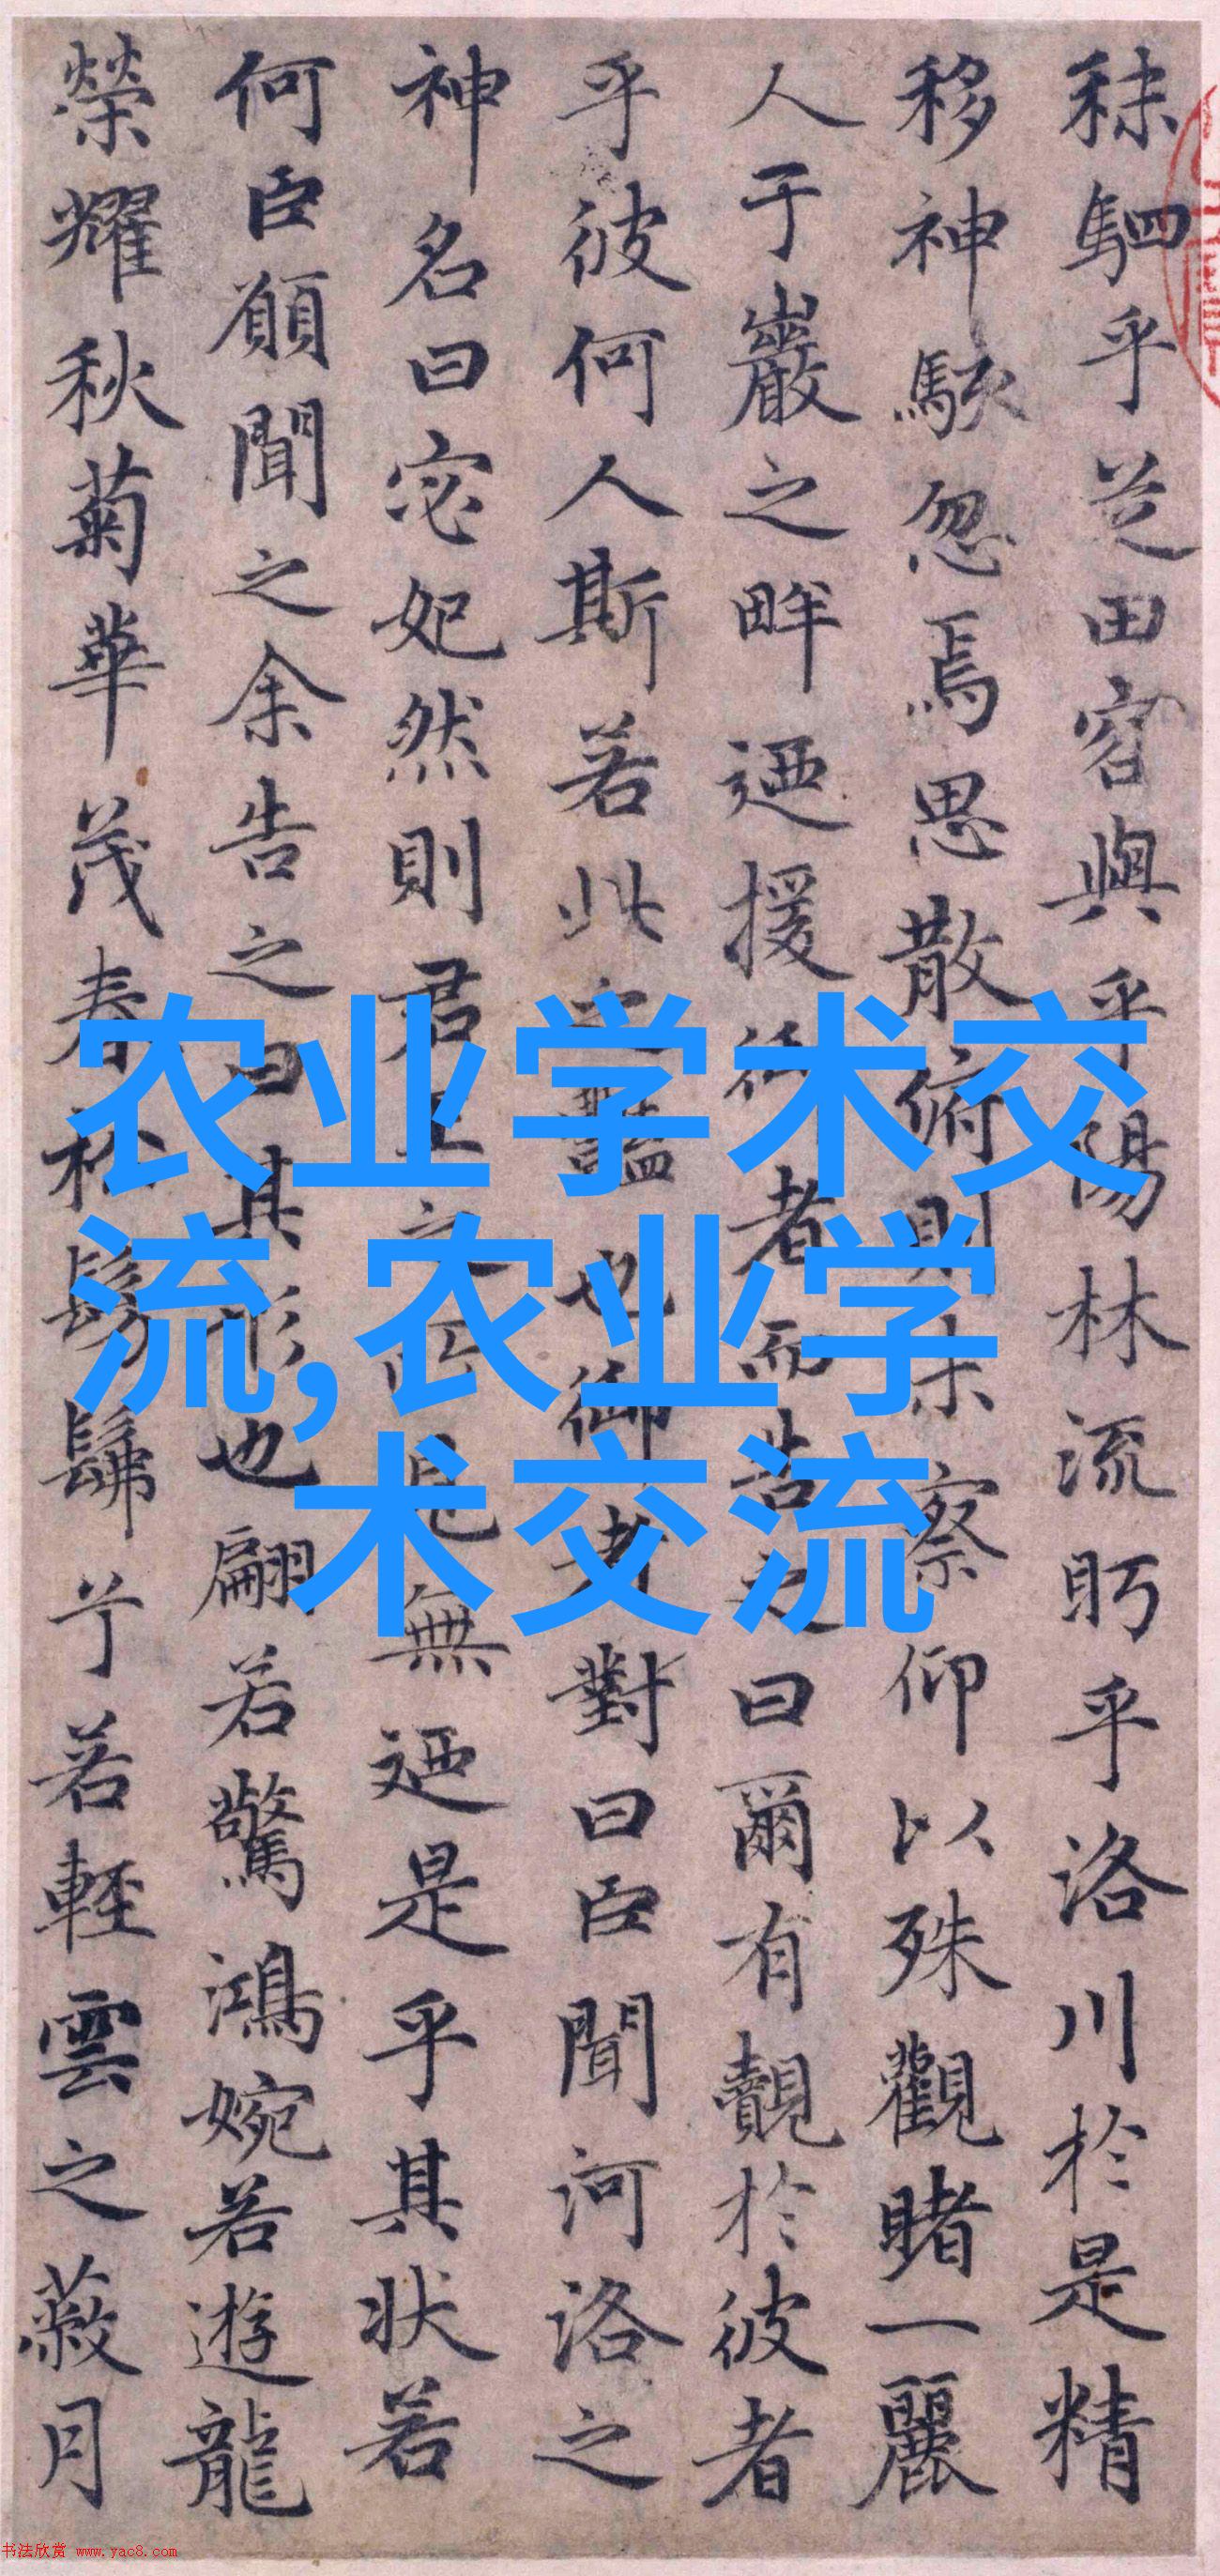 秣駟乎芝田容與乎陽林流眄乎洛川於是精
移神駭忽焉思散俯則未察仰以殊觀睹一麗
人于巖之畔迺援御者而告之曰爾有覿於彼者
乎彼何人斯若此之豔也御者對曰臣聞河洛之
神名曰宓妃然則君王之所見無迺是乎其狀若
何臣願聞之余告之曰其形也翩若驚鴻婉若遊龍
榮耀秋菊華茂春松髣髴兮若輕雲之蔽月
农业学术交
流,农业学
术交流
书法欣赏 www.yac8.com